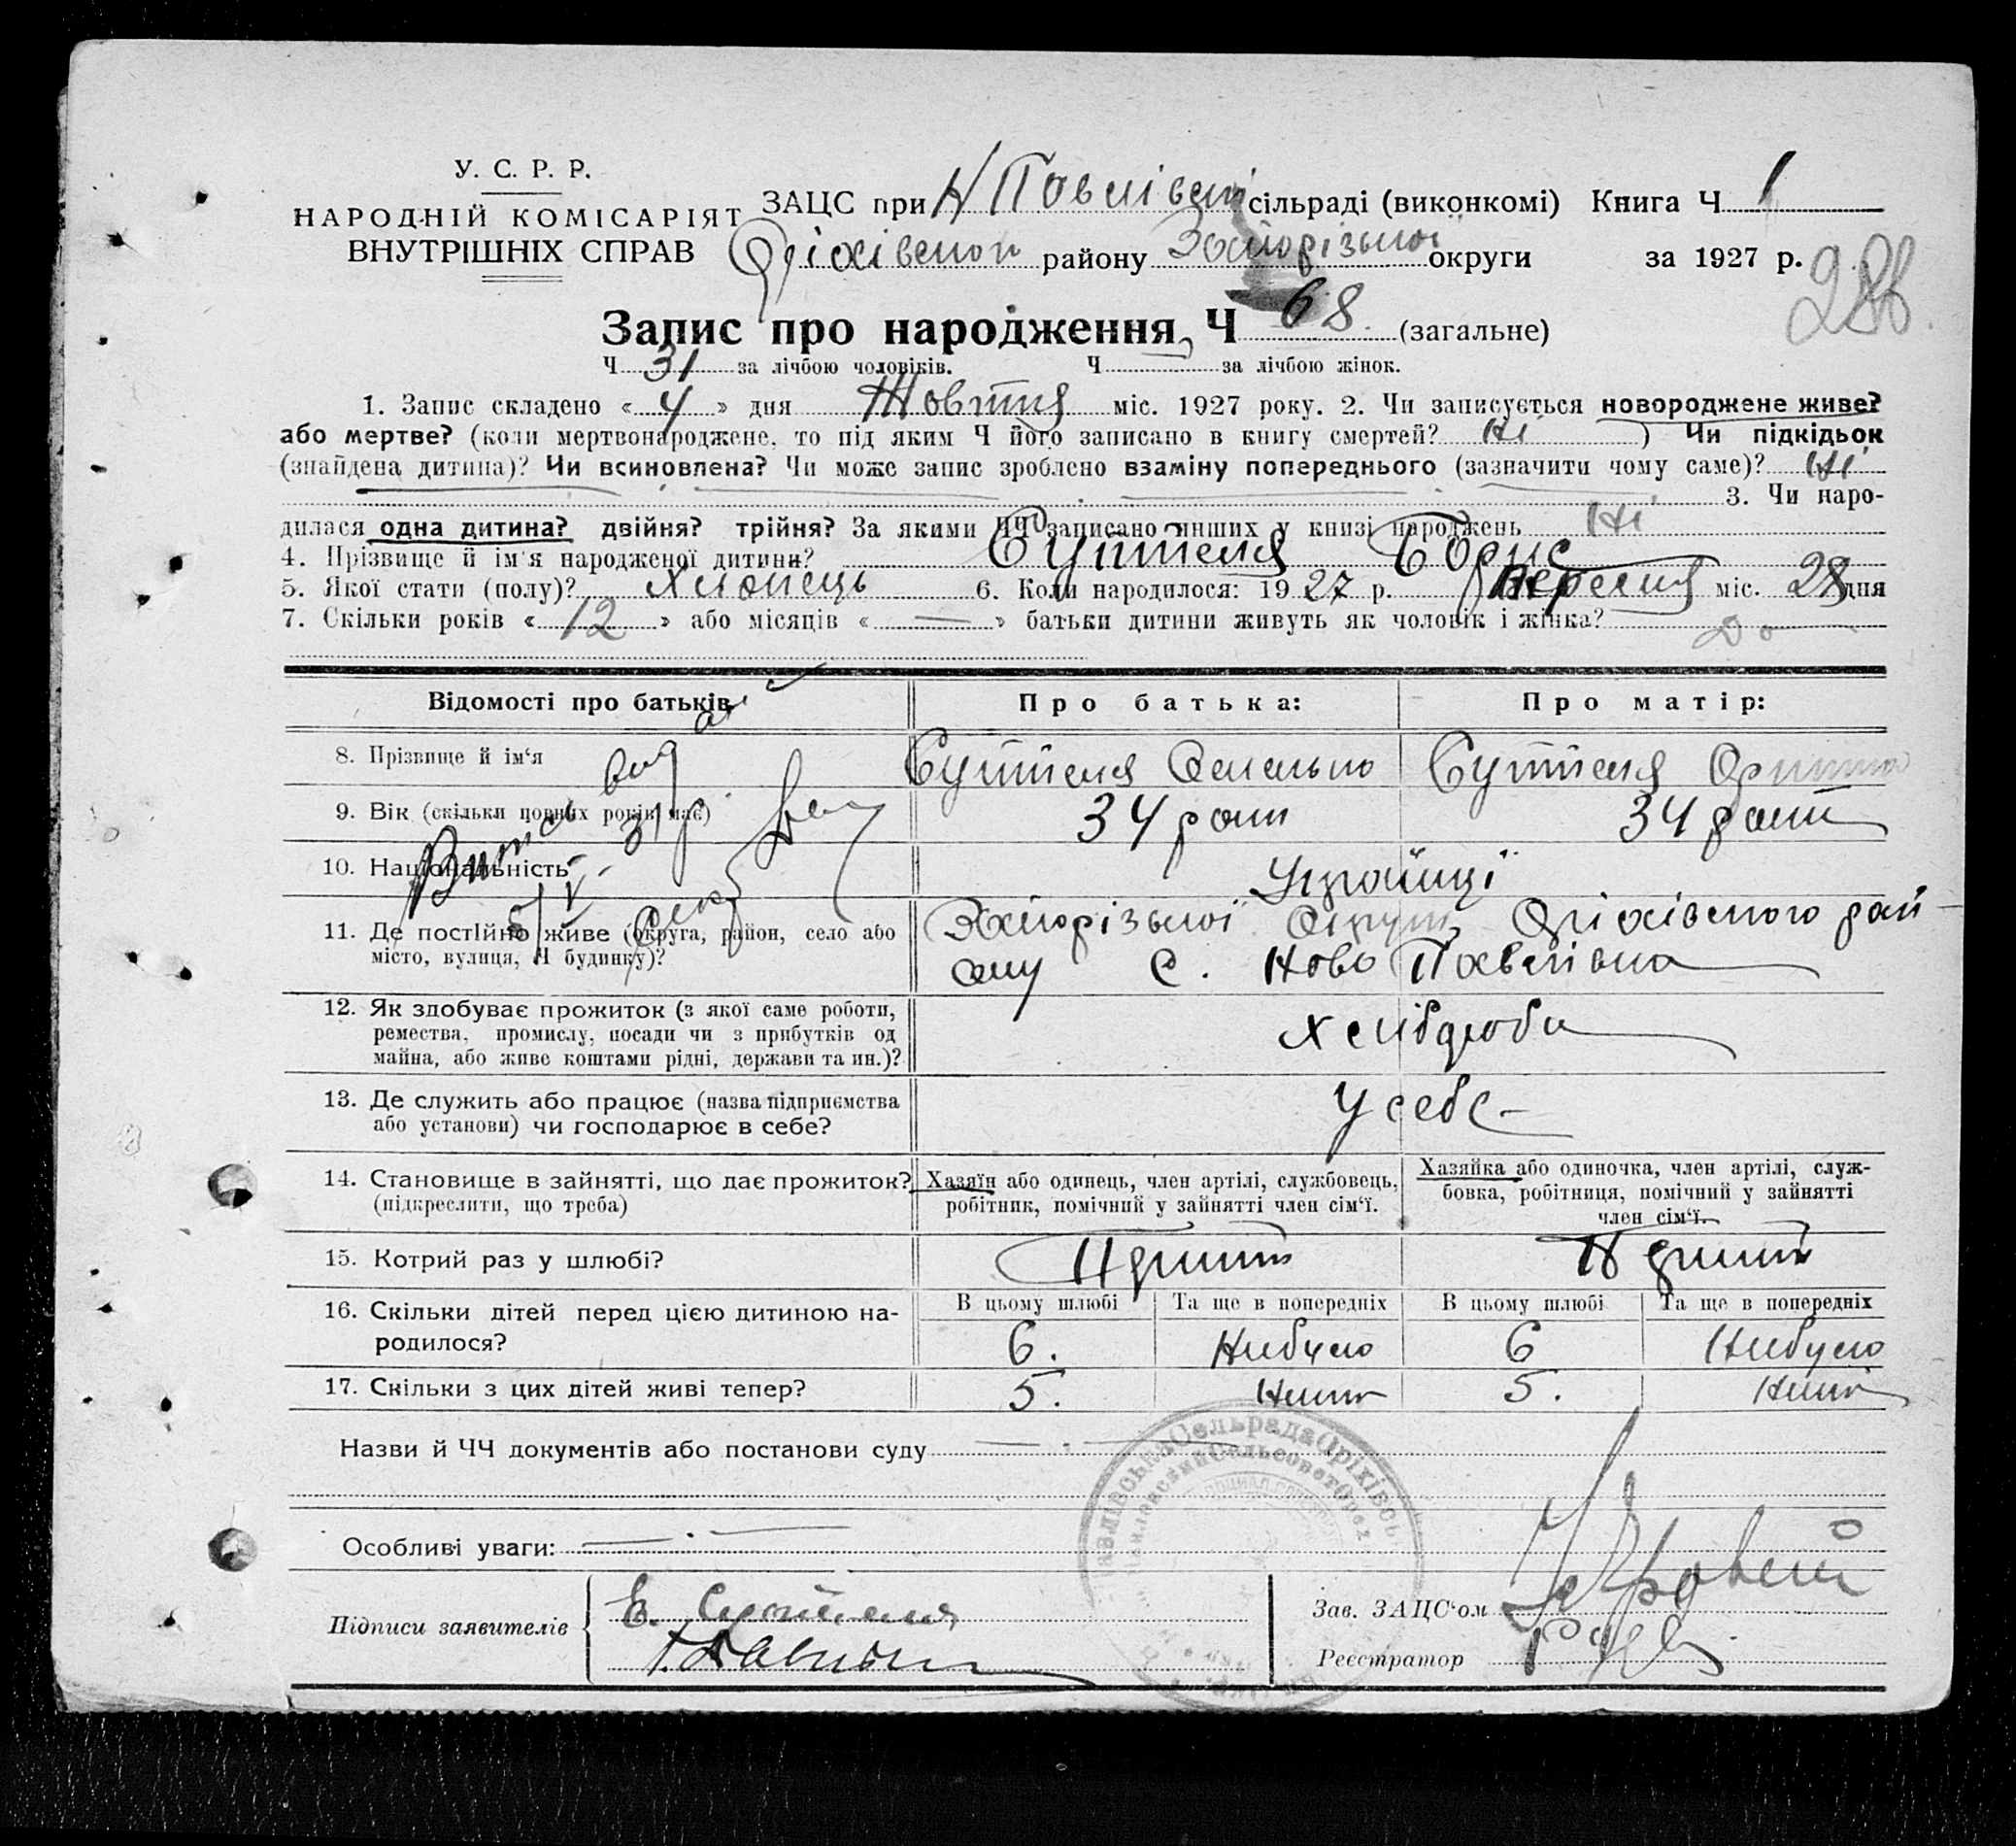 У. С. Р. Р.
НАРОДНІЙ КОМІСАРІЯТ
ВНУТРІШНІХ СПРАВ
ЗАЦС при Н Повлівські сільраді (виконкомі) Книга Ч 1
Оріхівської району Запорізької округи за 1927 р.
Запис про народження, Ч 68 (загальне)
Ч 31 за лічбою чоловіків. Ч за лічбою жінок.
1. Запис складено « 4 » дня Жовтня міс. 1927 року. 2. Чи записується новороджене живе?
або мертве? (коли мертвонароджене, то під яким Ч його записано в книгу смертей? Ні ) Чи підкідьок
(знайдена дитина)? Чи всиновлена? Чи може запис зроблено взаміну попереднього (зазначити чому саме)? Ні
3. Чи наро-
дилася одна дитина? двійня? трійня? За якими ЧЧ записано инших у книзі народжень Ні
4. Прізвище й ім'я народженої дитини? Суптеля Борис
5. Якої стати (полу)? хлопець 6. Коли народилося: 1927 р. вересня міс. 28 дня
7. Скільки років « 12 » або місяців « — » батьки дитини живуть як чоловік і жінка?
Відомості про батьків Про батька: Про матір:
8. Прізвище й ім'я Суптеля Омелько Суптеля Орина
9. Вік (скільки повних років має) 34 роки 34 роки
10. Національність Українці
11. Де постійно живе (округа, район, село або Запорізької Округи, Оріхівского рай-
місто, вулиця, Ч будинку)? ону с. Ново Павлівка
12. Як здобуває прожиток (з якої саме роботи,
ремества, промислу, посади чи з прибутків од
майна, або живе коштами рідні, держави та ин.)? хліброби
13. Де служить або працює (назва підприємства
або установи) чи господарює в себе? У себе
14. Становище в зайнятті, що дає прожиток?
(підкреслити, що треба)
Хазяїн або одинець, член артілі, службовець,
робітник, помічний у зайнятті член сім'ї.
Хазяйка або одиночка, член артілі, служ-
бовка, робітниця, помічний у зайнятті
член сім'ї.
15. Котрий раз у шлюбі?
16. Скільки дітей перед цією дитиною на-
родилося?
В цьому шлюбі Та ще в попередніх В цьому шлюбі Та ще в попередніх
6. Небуло 6 Небуло
17. Скільки з цих дітей живі тепер? 5. 5.
Назви й ЧЧ документів або постанови суду
Особливі уваги:
Підписи заявителів
Е. Суптеля
Зав. ЗАЦС'ом
Реєстратор